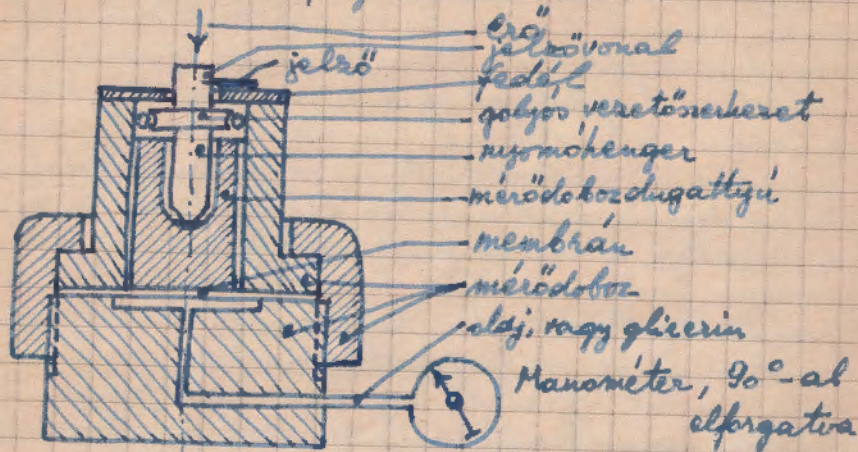 erő
jelzővonal
jelző
fedél
golyós vezetőszerkezet
nyomóhenger
mérődobozdugattyú
membrán
mérődoboz
olaj, vagy glicerin
Manométer, 90°-al
elforgatva